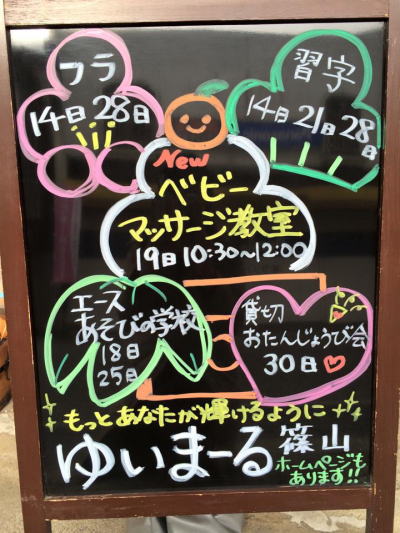 フラ
14日 28日
習字
14日 21日 28日
New
ベビー
マッサージ教室
19日 10:30~12:00
エーズ
あそびの学校
18日
25日
貸切
おたんじょうび会
30日
もっとあなたが輝けるように
ゆいまーる 篠山
ホームページも
あります!!